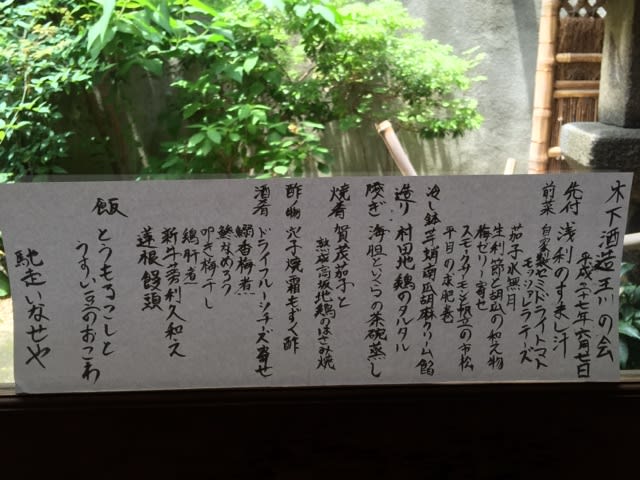 木下酒造玉川の会
平成二十七年六月廿日
先付 浅利のすまし汁
前菜 自家製セミドライトマト
モッツァレラチーズ
茄子水無月
生利節と胡瓜の和え物
梅ゼリー寄せ
スモークサーモンと帆立の市松
平目の求肥巻
冷し鉢 芋蛸南瓜胡麻クリーム餡
造り 村田地鶏のタルタル
凌ぎ 海胆といくらの茶碗蒸し
焼肴 賀茂茄子と
熟成高坂地鶏のはさみ焼
酢の物 穴子焼霜もずく酢
酒肴 ドライフルーツチーズ寄せ
鰯香梅煮
鯵なめろう
叩き梅干し
鶏肝煮
新牛蒡利久和え
蓮根饅頭
飯 とうもろこしと
うすい豆のおこわ
馳走いなせや